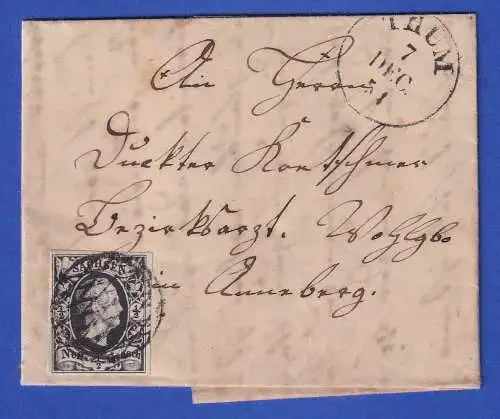 THUM
7
DEC
51
An Herrn
Ducktor Kretschmer
Bezirksarzt. Wohlgb.
in Anneberg.
SACHSEN
½ ½
Neu-Grosch.
½